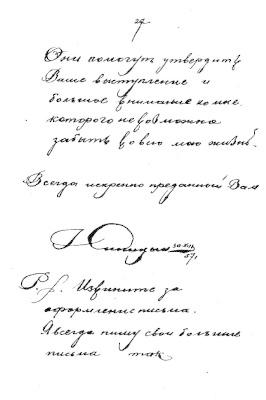 Они помогут утвердить
Ваше выступление и
большое внимание ко мне
которого невозможно
забыть во всю мою жизнь.
Всегда искренно преданный Вам
P.S. Извините за
оформление письма.
Я всегда пишу свои большие
письма так